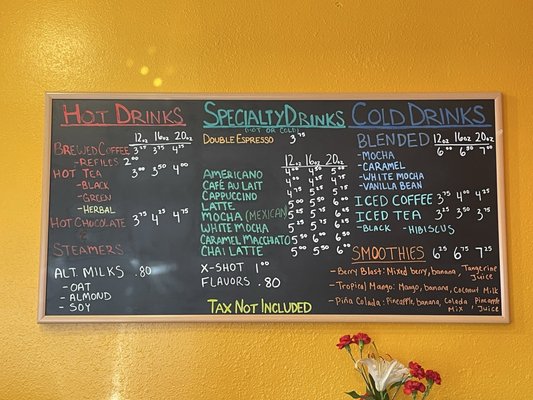 HOT DRINKS
12oz 16oz 20oz
BREWED COFFEE 3.75
- REFILLS 2.00
HOT TEA 3.00 3.50 4.00
- BLACK
- GREEN
- HERBAL
HOT CHOCOLATE 3.75 4.25 4.75
&
STEAMERS
ALT. MILKS .80
- OAT
- ALMOND
- SOY
SPECIALTY DRINKS
(HOT OR COLD)
DOUBLE ESPRESSO 3.75
12oz 16oz 20oz
AMERICANO
CAFÉ AU LAIT
CAPPUCCINO
LATTE
MOCHA (MEXICAN)
WHITE MOCHA
CARAMEL MACCHIATO
CHAI LATTE
X-SHOT 1.00
FLAVORS .80
TAX NOT INCLUDED
COLD DRINKS
BLENDED 12oz 16oz 20oz
- MOCHA
- CARAMEL
- WHITE MOCHA
- VANILLA BEAN
6.00 6.50 7.00
ICED COFFEE 3.75 4.00 4.25
ICED TEA 3.25 3.50 3.75
- BLACK - HIBISCUS
SMOOTHIES 6.25 6.75 7.25
- Berry Blast: Mixed berry, banana, Tangerine Juice
- Tropical Mango: Mango, banana, Coconut Milk
- Piña Colada: Pineapple, banana, Colada Mix, Pineapple Juice